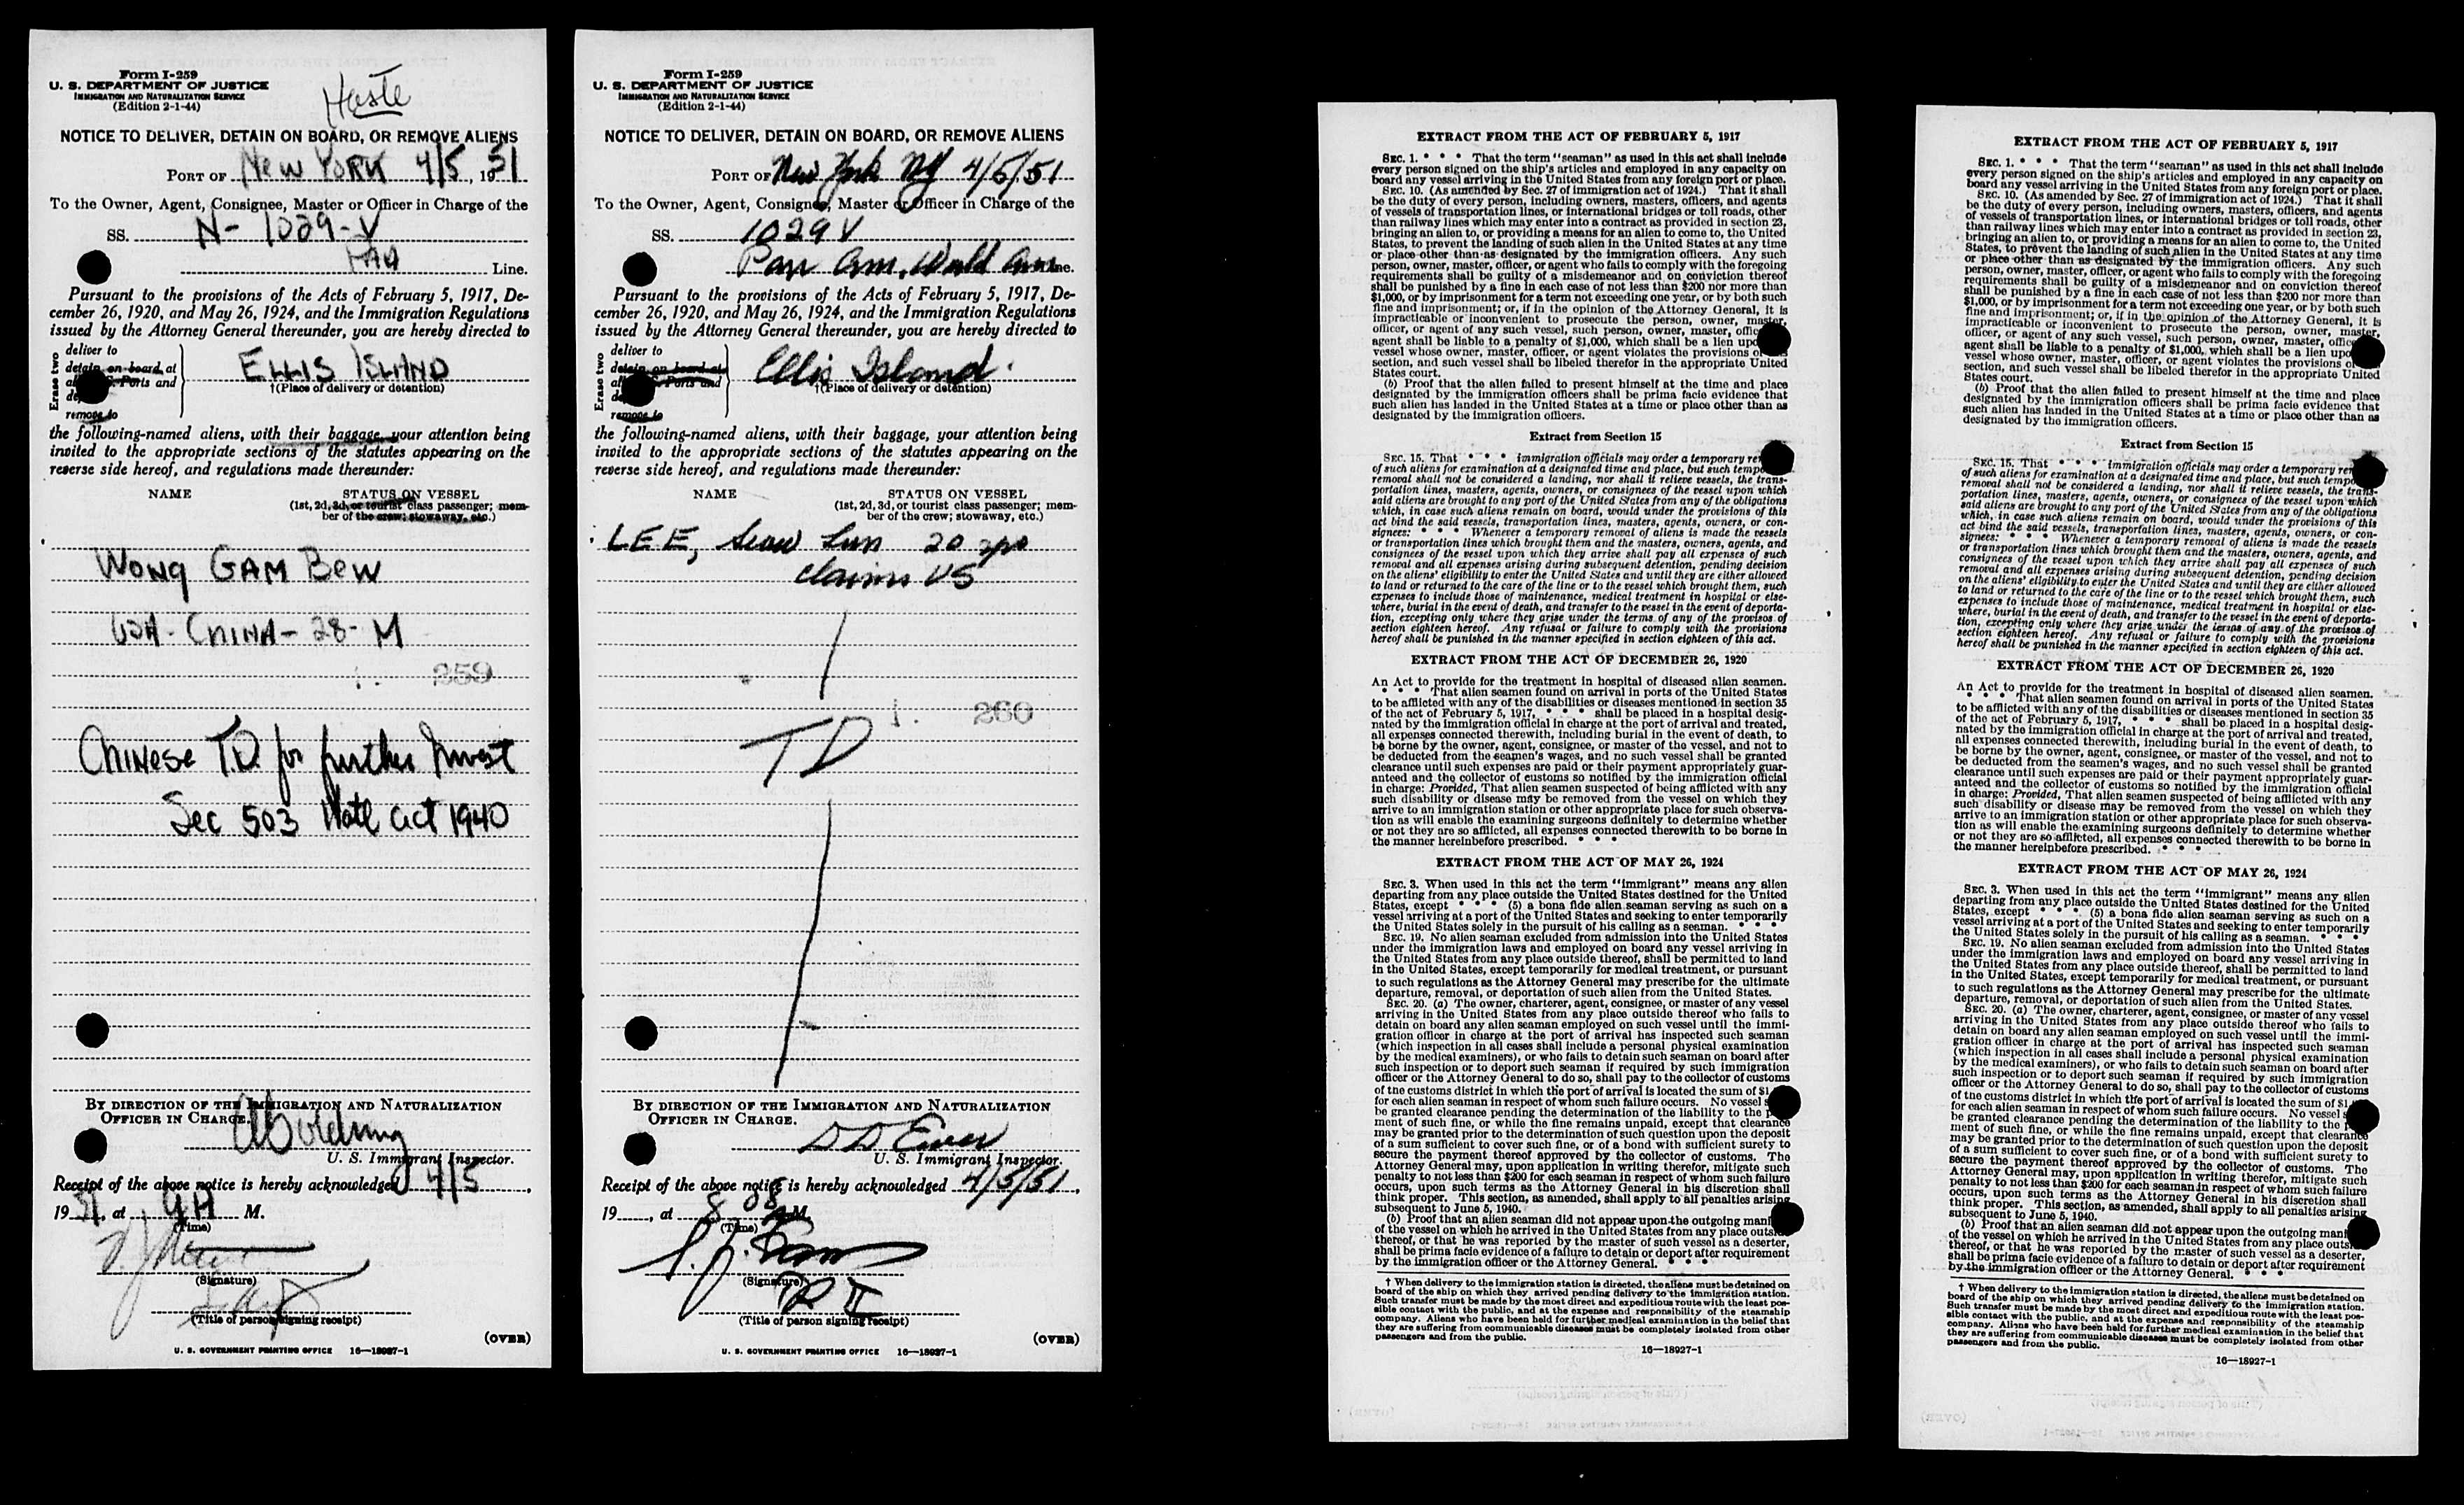 Form I-259
U. S. DEPARTMENT OF JUSTICE
IMMIGRATION AND NATURALIZATION SERVICE
(Edition 2-1-44)
Haste
NOTICE TO DELIVER, DETAIN ON BOARD, OR REMOVE ALIENS
PORT OF New York 4/5, 1951
To the Owner, Agent, Consignee, Master or Officer in Charge of the
SS. N-1029-V
PAA Line.
Pursuant to the provisions of the Acts of February 5, 1917, De-
cember 26, 1920, and May 26, 1924, and the Immigration Regulations
issued by the Attorney General thereunder, you are hereby directed to
Erase two
deliver to
detain on board at
Ports and
remove to
ELLIS ISLAND
†(Place of delivery or detention)
the following-named aliens, with their baggage, your attention being
invited to the appropriate sections of the statutes appearing on the
reverse side hereof, and regulations made thereunder:
NAME STATUS ON VESSEL
(1st, 2d, 3d, or tourist class passenger; mem-
ber of the crew; stowaway, etc.)
WONG GAM BEW
USA - CHINA - 28 - M
259
Chinese T.D. for further Invest
Sec 503 Natl Act 1940
BY DIRECTION OF THE IMMIGRATION AND NATURALIZATION
OFFICER IN CHARGE.
U. S. Immigrant Inspector.
Receipt of the above notice is hereby acknowledged 4/5,
1951, at 9A M.
(Time)
(Signature)
(Title of person signing receipt)
(OVER)
U. S. GOVERNMENT PRINTING OFFICE 16—18927-1
Form I-259
U. S. DEPARTMENT OF JUSTICE
IMMIGRATION AND NATURALIZATION SERVICE
(Edition 2-1-44)
NOTICE TO DELIVER, DETAIN ON BOARD, OR REMOVE ALIENS
PORT OF New York NY 4/5/51
To the Owner, Agent, Consignee, Master or Officer in Charge of the
SS. 1029V
Pan Am. World Line.
Pursuant to the provisions of the Acts of February 5, 1917, De-
cember 26, 1920, and May 26, 1924, and the Immigration Regulations
issued by the Attorney General thereunder, you are hereby directed to
Erase two
deliver to
detain on board at
Ports and
remove to
Ellis Island.
†(Place of delivery or detention)
the following-named aliens, with their baggage, your attention being
invited to the appropriate sections of the statutes appearing on the
reverse side hereof, and regulations made thereunder:
NAME STATUS ON VESSEL
(1st, 2d, 3d, or tourist class passenger; mem-
ber of the crew; stowaway, etc.)
LEE, Seow Lun 20 yrs
claims US
260
TD
BY DIRECTION OF THE IMMIGRATION AND NATURALIZATION
OFFICER IN CHARGE.
U. S. Immigrant Inspector.
Receipt of the above notice is hereby acknowledged 4/5/51,
19, at 8 08 AM.
(Time)
(Signature)
(Title of person signing receipt)
(OVER)
U. S. GOVERNMENT PRINTING OFFICE 16—18927-1
EXTRACT FROM THE ACT OF FEBRUARY 5, 1917
SEC. 1. * * * That the term "seaman" as used in this act shall include
every person signed on the ship's articles and employed in any capacity on
board any vessel arriving in the United States from any foreign port or place.
SEC. 10. (As amended by Sec. 27 of immigration act of 1924.) That it shall
be the duty of every person, including owners, masters, officers, and agents
of vessels of transportation lines, or international bridges or toll roads, other
than railway lines which may enter into a contract as provided in section 23,
bringing an alien to, or providing a means for an alien to come to, the United
States, to prevent the landing of such alien in the United States at any time
or place other than as designated by the immigration officers. Any such
person, owner, master, officer, or agent who fails to comply with the foregoing
requirements shall be guilty of a misdemeanor and on conviction thereof
shall be punished by a fine in each case of not less than $200 nor more than
$1,000, or by imprisonment for a term not exceeding one year, or by both such
fine and imprisonment; or, if in the opinion of the Attorney General, it is
impracticable or inconvenient to prosecute the person, owner, master,
officer, or agent of any such vessel, such person, owner, master, offic
agent shall be liable to a penalty of $1,000, which shall be a lien upo
vessel whose owner, master, officer, or agent violates the provisions o
section, and such vessel shall be libeled therefor in the appropriate United
States court.
(b) Proof that the alien failed to present himself at the time and place
designated by the immigration officers shall be prima facie evidence that
such alien has landed in the United States at a time or place other than as
designated by the immigration officers.
Extract from Section 15
SEC. 15. That * * * immigration officials may order a temporary re
of such aliens for examination at a designated time and place, but such tempo
removal shall not be considered a landing, nor shall it relieve vessels, the trans-
portation lines, masters, agents, owners, or consignees of the vessel upon which
said aliens are brought to any port of the United States from any of the obligations
which, in case such aliens remain on board, would under the provisions of this
act bind the said vessels, transportation lines, masters, agents, owners, or con-
signees: * * * Whenever a temporary removal of aliens is made the vessels
or transportation lines which brought them and the masters, owners, agents, and
consignees of the vessel upon which they arrive shall pay all expenses of such
removal and all expenses arising during subsequent detention, pending decision
on the aliens' eligibility to enter the United States and until they are either allowed
to land or returned to the care of the line or to the vessel which brought them, such
expenses to include those of maintenance, medical treatment in hospital or else-
where, burial in the event of death, and transfer to the vessel in the event of deporta-
tion, excepting only where they arise under the terms of any of the provisos of
section eighteen hereof. Any refusal or failure to comply with the provisions
hereof shall be punished in the manner specified in section eighteen of this act.
EXTRACT FROM THE ACT OF DECEMBER 26, 1920
An Act to provide for the treatment in hospital of diseased alien seamen.
* * * That alien seamen found on arrival in ports of the United States
to be afflicted with any of the disabilities or diseases mentioned in section 35
of the act of February 5, 1917, * * * shall be placed in a hospital desig-
nated by the immigration official in charge at the port of arrival and treated,
all expenses connected therewith, including burial in the event of death, to
be borne by the owner, agent, consignee, or master of the vessel, and not to
be deducted from the seamen's wages, and no such vessel shall be granted
clearance until such expenses are paid or their payment appropriately guar-
anteed and the collector of customs so notified by the immigration official
in charge: Provided, That alien seamen suspected of being afflicted with any
such disability or disease may be removed from the vessel on which they
arrive to an immigration station or other appropriate place for such observa-
tion as will enable the examining surgeons definitely to determine whether
or not they are so afflicted, all expenses connected therewith to be borne in
the manner hereinbefore prescribed. * * *
EXTRACT FROM THE ACT OF MAY 26, 1924
SEC. 3. When used in this act the term "immigrant" means any alien
departing from any place outside the United States destined for the United
States, except * * * (5) a bona fide alien seaman serving as such on a
vessel arriving at a port of the United States and seeking to enter temporarily
the United States solely in the pursuit of his calling as a seaman. * * *
SEC. 19. No alien seaman excluded from admission into the United States
under the immigration laws and employed on board any vessel arriving in
the United States from any place outside thereof, shall be permitted to land
in the United States, except temporarily for medical treatment, or pursuant
to such regulations as the Attorney General may prescribe for the ultimate
departure, removal, or deportation of such alien from the United States.
SEC. 20. (a) The owner, charterer, agent, consignee, or master of any vessel
arriving in the United States from any place outside thereof who fails to
detain on board any alien seaman employed on such vessel until the immi-
gration officer in charge at the port of arrival has inspected such seaman
(which inspection in all cases shall include a personal physical examination
by the medical examiners), or who fails to detain such seaman on board after
such inspection or to deport such seaman if required by such immigration
officer or the Attorney General to do so, shall pay to the collector of customs
of the customs district in which the port of arrival is located the sum of $1
for each alien seaman in respect of whom such failure occurs. No vessel s
be granted clearance pending the determination of the liability to the p
ment of such fine, or while the fine remains unpaid, except that clearance
may be granted prior to the determination of such question upon the deposit
of a sum sufficient to cover such fine, or of a bond with sufficient surety to
secure the payment thereof approved by the collector of customs. The
Attorney General may, upon application in writing therefor, mitigate such
penalty to not less than $200 for each seaman in respect of whom such failure
occurs, upon such terms as the Attorney General in his discretion shall
think proper. This section, as amended, shall apply to all penalties arising
subsequent to June 5, 1940.
(b) Proof that an alien seaman did not appear upon the outgoing mani
of the vessel on which he arrived in the United States from any place outsi
thereof, or that he was reported by the master of such vessel as a deserter,
shall be prima facie evidence of a failure to detain or deport after requirement
by the immigration officer or the Attorney General. * * *
† When delivery to the immigration station is directed, the aliens must be detained on
board of the ship on which they arrived pending delivery to the immigration station.
Such transfer must be made by the most direct and expeditious route with the least pos-
sible contact with the public, and at the expense and responsibility of the steamship
company. Aliens who have been held for further medical examination in the belief that
they are suffering from communicable diseases must be completely isolated from other
passengers and from the public.
16—18927-1
EXTRACT FROM THE ACT OF FEBRUARY 5, 1917
SEC. 1. * * * That the term "seaman" as used in this act shall include
every person signed on the ship's articles and employed in any capacity on
board any vessel arriving in the United States from any foreign port or place.
SEC. 10. (As amended by Sec. 27 of immigration act of 1924.) That it shall
be the duty of every person, including owners, masters, officers, and agents
of vessels of transportation lines, or international bridges or toll roads, other
than railway lines which may enter into a contract as provided in section 23,
bringing an alien to, or providing a means for an alien to come to, the United
States, to prevent the landing of such alien in the United States at any time
or place other than as designated by the immigration officers. Any such
person, owner, master, officer, or agent who fails to comply with the foregoing
requirements shall be guilty of a misdemeanor and on conviction thereof
shall be punished by a fine in each case of not less than $200 nor more than
$1,000, or by imprisonment for a term not exceeding one year, or by both such
fine and imprisonment; or, if in the opinion of the Attorney General, it is
impracticable or inconvenient to prosecute the person, owner, master,
officer, or agent of any such vessel, such person, owner, master, offic
agent shall be liable to a penalty of $1,000, which shall be a lien upo
vessel whose owner, master, officer, or agent violates the provisions o
section, and such vessel shall be libeled therefor in the appropriate United
States court.
(b) Proof that the alien failed to present himself at the time and place
designated by the immigration officers shall be prima facie evidence that
such alien has landed in the United States at a time or place other than as
designated by the immigration officers.
Extract from Section 15
SEC. 15. That * * * immigration officials may order a temporary re
of such aliens for examination at a designated time and place, but such tempo
removal shall not be considered a landing, nor shall it relieve vessels, the trans-
portation lines, masters, agents, owners, or consignees of the vessel upon which
said aliens are brought to any port of the United States from any of the obligations
which, in case such aliens remain on board, would under the provisions of this
act bind the said vessels, transportation lines, masters, agents, owners, or con-
signees: * * * Whenever a temporary removal of aliens is made the vessels
or transportation lines which brought them and the masters, owners, agents, and
consignees of the vessel upon which they arrive shall pay all expenses of such
removal and all expenses arising during subsequent detention, pending decision
on the aliens' eligibility to enter the United States and until they are either allowed
to land or returned to the care of the line or to the vessel which brought them, such
expenses to include those of maintenance, medical treatment in hospital or else-
where, burial in the event of death, and transfer to the vessel in the event of deporta-
tion, excepting only where they arise under the terms of any of the provisos of
section eighteen hereof. Any refusal or failure to comply with the provisions
hereof shall be punished in the manner specified in section eighteen of this act.
EXTRACT FROM THE ACT OF DECEMBER 26, 1920
An Act to provide for the treatment in hospital of diseased alien seamen.
* * * That alien seamen found on arrival in ports of the United States
to be afflicted with any of the disabilities or diseases mentioned in section 35
of the act of February 5, 1917, * * * shall be placed in a hospital desig-
nated by the immigration official in charge at the port of arrival and treated,
all expenses connected therewith, including burial in the event of death, to
be borne by the owner, agent, consignee, or master of the vessel, and not to
be deducted from the seamen's wages, and no such vessel shall be granted
clearance until such expenses are paid or their payment appropriately guar-
anteed and the collector of customs so notified by the immigration official
in charge: Provided, That alien seamen suspected of being afflicted with any
such disability or disease may be removed from the vessel on which they
arrive to an immigration station or other appropriate place for such observa-
tion as will enable the examining surgeons definitely to determine whether
or not they are so afflicted, all expenses connected therewith to be borne in
the manner hereinbefore prescribed. * * *
EXTRACT FROM THE ACT OF MAY 26, 1924
SEC. 3. When used in this act the term "immigrant" means any alien
departing from any place outside the United States destined for the United
States, except * * * (5) a bona fide alien seaman serving as such on a
vessel arriving at a port of the United States and seeking to enter temporarily
the United States solely in the pursuit of his calling as a seaman. * * *
SEC. 19. No alien seaman excluded from admission into the United States
under the immigration laws and employed on board any vessel arriving in
the United States from any place outside thereof, shall be permitted to land
in the United States, except temporarily for medical treatment, or pursuant
to such regulations as the Attorney General may prescribe for the ultimate
departure, removal, or deportation of such alien from the United States.
SEC. 20. (a) The owner, charterer, agent, consignee, or master of any vessel
arriving in the United States from any place outside thereof who fails to
detain on board any alien seaman employed on such vessel until the immi-
gration officer in charge at the port of arrival has inspected such seaman
(which inspection in all cases shall include a personal physical examination
by the medical examiners), or who fails to detain such seaman on board after
such inspection or to deport such seaman if required by such immigration
officer or the Attorney General to do so, shall pay to the collector of customs
of the customs district in which the port of arrival is located the sum of $1
for each alien seaman in respect of whom such failure occurs. No vessel s
be granted clearance pending the determination of the liability to the p
ment of such fine, or while the fine remains unpaid, except that clearance
may be granted prior to the determination of such question upon the deposit
of a sum sufficient to cover such fine, or of a bond with sufficient surety to
secure the payment thereof approved by the collector of customs. The
Attorney General may, upon application in writing therefor, mitigate such
penalty to not less than $200 for each seaman in respect of whom such failure
occurs, upon such terms as the Attorney General in his discretion shall
think proper. This section, as amended, shall apply to all penalties arising
subsequent to June 5, 1940.
(b) Proof that an alien seaman did not appear upon the outgoing mani
of the vessel on which he arrived in the United States from any place outsi
thereof, or that he was reported by the master of such vessel as a deserter,
shall be prima facie evidence of a failure to detain or deport after requirement
by the immigration officer or the Attorney General. * * *
† When delivery to the immigration station is directed, the aliens must be detained on
board of the ship on which they arrived pending delivery to the immigration station.
Such transfer must be made by the most direct and expeditious route with the least pos-
sible contact with the public, and at the expense and responsibility of the steamship
company. Aliens who have been held for further medical examination in the belief that
they are suffering from communicable diseases must be completely isolated from other
passengers and from the public.
16—18927-1